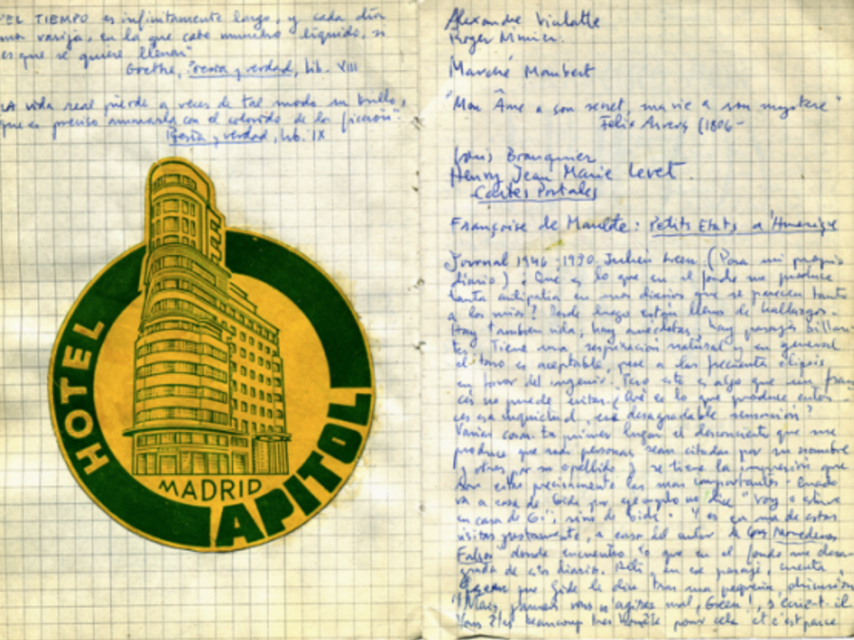 "EL TIEMPO es infinitamente largo, y cada día
una vasija, en la que cabe mucho líquido, si
es que se quiere llenar"
Goethe, Poesía y verdad, lib. XIII
LA vida real pierde a veces de tal modo su brillo,
que es preciso animarla con el colorido de la ficción"
Poesía y verdad, lib. IX
HOTEL
CAPITOL
MADRID
Alexandre Vialatte
Roger Nimier
Marché Mombert
"Mon Âme a son secret, ma vie a son mystère"
Félix Arvers (1806-
Louis Brauquier
Henry Jean Marie Levet.
Cartes Postales
Françoise de : Petits Etats d'Amérique
Journal 1946-1950. Julien Green. (Para mi propio
diario). Qué es lo que en el fondo me produce
tanta antipatía en unos diarios que se parecen tanto
a los míos? Desde luego están llenos de hallazgos.
Hay también vida, hay anécdotas, hay pasajes brillan-
tes. Tiene una respiración natural y en general
el tono es aceptable, pese a las frecuentes
en favor del ingenio. Pero esto es algo que un fran
cés no puede evitar. Qué es lo que produce enton-
ces esa inquietud, esa desagradable sensación?
Varias cosas. En primer lugar el desconcierto que me
produce que unas personas sean citadas por su nombre
y otras por su apellido y se tiene la impresión que
son estas precisamente las más importantes. Cuando
va a casa de Gide por ejemplo no dice "voy o estuve
en casa de G.", sino de "Gide". Y es en una de estas
visitas justamente, a casa del autor de Los Monederos
Falsos donde encuentro lo que en el fondo me desa-
grada de estos diarios. Allí en ese pasaje, cuenta
Green que Gide le dice tras una pequeña discusión
"¡Mais, jamais vous n'agirez mal, Green!, s'écrie-t-il
Vous êtes beaucoup très honnête pour cela et c'est parce